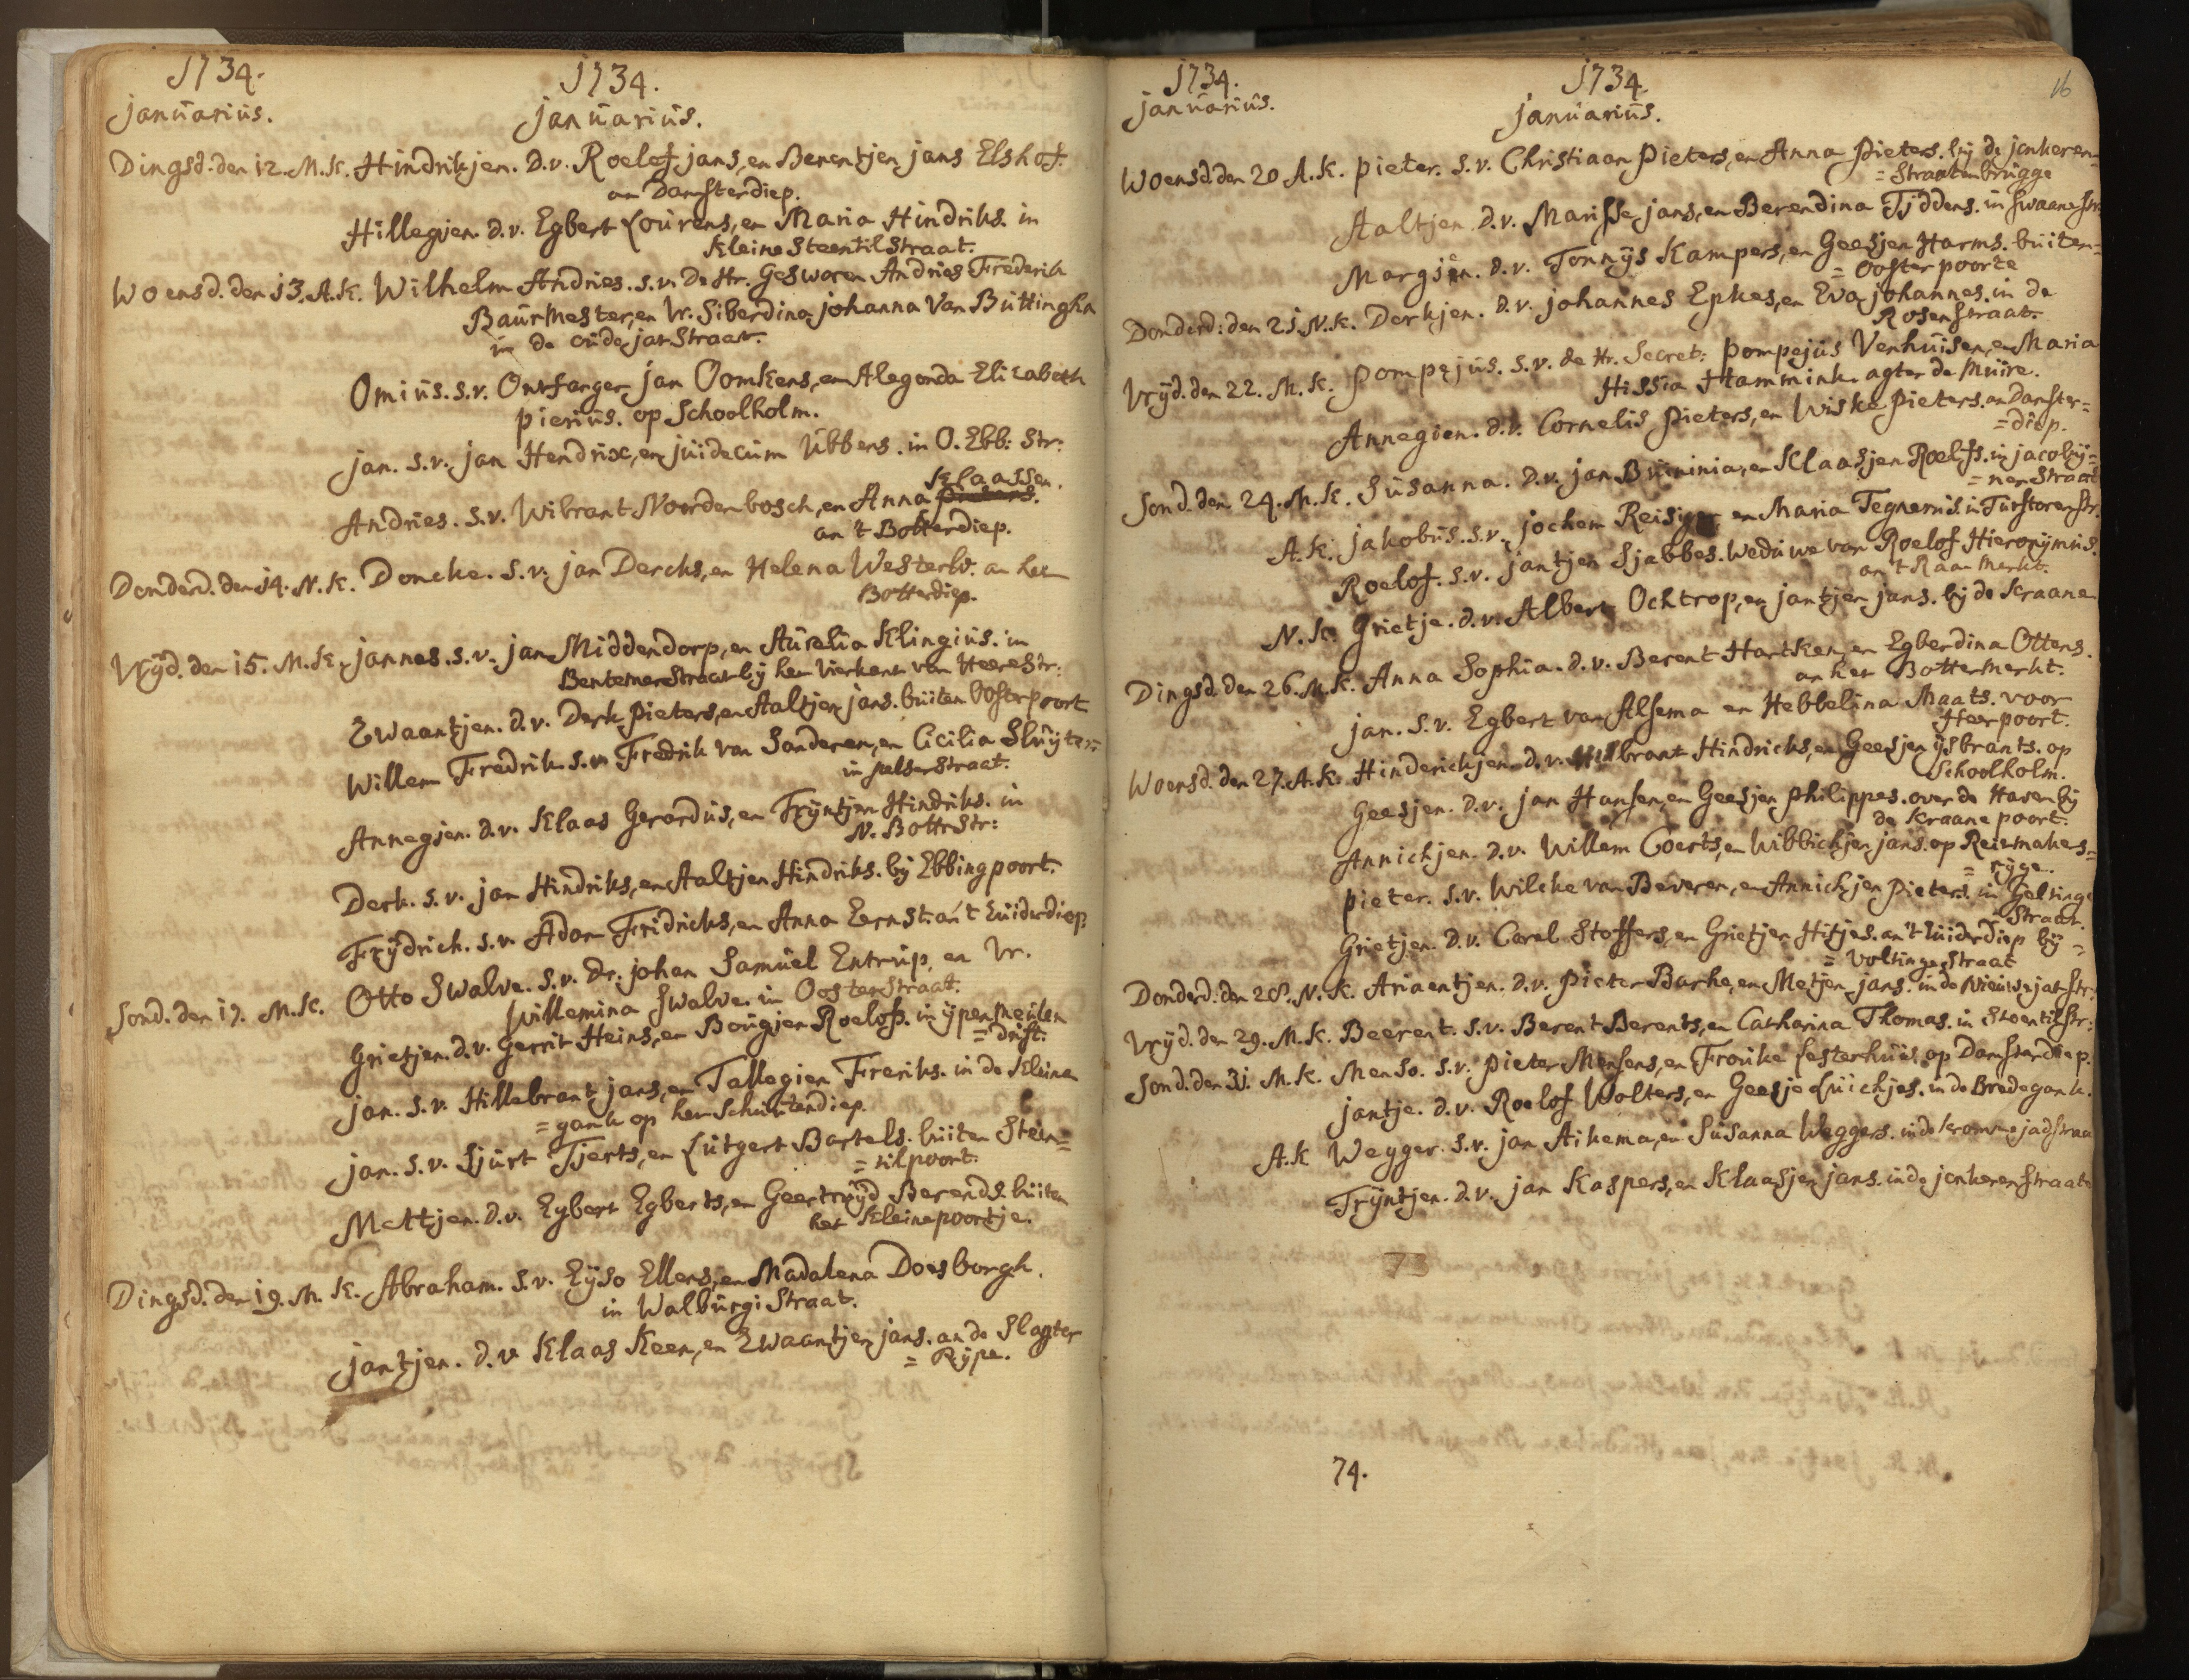 1734. 1734.
januarius. januarius.
Dingsd. den 12. M.K. Hindrikjen. d.v. Roelof jans, en Berentjen jans Elshof.
an Damsterdiep.
Hillegjen. d.v. Egbert Lourens, en Maria Hindriks. in
kleine Steentilstraat.
Woensd. den 13. A.K. Wilhelm Andries. s.v. De Hr. Gesworen Andries Frederik
Baurmester, en Vr. Siberdina johanna Van Buttingha
in de oude jatStraat.
Omius. s.v. Ontfanger jan Oomkens, en Alegonda Elizabeth
pierius. op Schoolholm.
jan. s.v. jan Hendrix, en juidecum Ubbens. in O. Ebb: Str:
Klaassen.
Andries. s.v. Wibrant Noordenbosch, en Anna
an 't Botterdiep.
Donderd. den 14. N.K. Doncke. s.v. jan Dercks, en Helena Westerho. an het
Botterdiep.
Vrijd. den 15. M.K. jannes. s.v. jan Middendorp, en Aurelia Klingius. in
Bentemerstraat bij het Vierkent van HeereStr:
Zwaantjen. d.v. Derk pieters, en Aaltjen jans. buiten Oosterpoort
Willem Fredrik. s.v. Fredrik van Sanderen, en Cicilia Sluijter:
in pelserStraat.
Annegjen. d.v. Klaas Gerardus, en Trijntjen Hindriks. in
N. BottrStr:
Derk. s.v. jan Hindriks, en Aaltjen Hindriks. bij Ebbingpoort.
Frijdrich. s.v. Adam Fridrichs, en Anna Eernst. an 't Zuiderdiep.
Sond. den 17. M.K. Otto Swalve. s.v. Dr. johan Samuel Entrup, en Vr.
Willemina Swalve. in OosterStraat.
Grietjen. d.v. Gerrit Heins, en Bougjen Roelofs. in ijpenmeulen
= drift.
jan. s.v. Hillebrant jans, en Tallegien Freriks. in de Kleine
= gank op het Schuitendiep.
jan. s.v. Sjurt Tjerts, en Lutgert Bartels. buiten Stein=
= tilpoort.
Mettjen. d.v. Egbert Egberts, en Geertruijd Berends. buiten
het Kleinepoortje.
Dingsd. den 19. M.K. Abraham. s.v. Eijso Ellens, en Madalena Doesborgh.
in WalburgiStraat.
jantjen. d.v. Klaas Keen, en Zwaantjen jans. an de Slagter
= Rijpe.
1734. 1734. 16
januarius. januarius.
Woensd. den 20 A.K. pieter. s.v. Christiaan Pieters, en Anna Pieters. bij de jonkeren=
= Straatenbrugge
Aaltjen d.v. Marisse jans, en Berendina Tjddens. in SwaaneStr:
Margjen. d.v. Tonnijs Kampers, en Geesjen Harms. buiten=
= Oosterpoorte
Donderd: den 21. N.K. Derkjen. d.v. johannes Epkes, en Eva johannes. in de
Rosenstraat.
Vrijd. den 22. M.K. pompejus. s.v. de Hr. Secret: pompejus Venhuisen, en Maria
Hissia Hammink. agter de Muire.
Annegien. d.v. Cornelis pieters, en Wiske pieters. an Damster=
= diep.
Sond. den 24. M.K. Susanna. d.v. jan Buininia, en Klaasjen Roelfs. in jacobij=
= nerStraat
A.K. jakobus. s.v. jochem Reisiger en Maria Tegnerus. in TurftorenStr.
Roelof. s.v. jantjen Sjabbes. Weduwe van Roelof Hieronijmus.
an 't Raamerkt.
N.K. Grietje. d.v. Albert Ochtrop, en jantjen jans. bij de Kraane
Dingsd. den 26. M.K. Anna Sophia. d.v. Berent Hartken, en Egberdina Ottens.
an het Bottermerkt.
jan. s.v. Egbert van Alsema en Hebbelina Maats. voor
Heerpoort.
Woensd. den 27. A.K. Hinderickjen d.v. Hilbrant Hindricks, en Geesjen ijsbrants. op
Schoolholm.
Geesjen. d.v. jan Hansen, en Geesjen philippes. over de Haven bij
de Kraane poort.
Annichjen. d.v. Willem Coerts, en Wibbichjen jans. op Reitmakers=
= rijge.
pieter. s.v. Wilcke van Beveren, en Annichjen Pieters. in Gelkinge
Straat.
Grietjen. d.v. Carel Stoffers, en Grietjen Hitjes. an 't Zuiderdiep bij =
= VolkingeStraat
Donderd. den 28. N.K. Ariaentjen. d.v. Pieter Barke, en Metjen jans. in de NieuwejatStr:
Vrijd. den 29. M.K. Beerent. s.v. Berent Berents, en Catharina Thomas. in SteentilStr:
Sond. den 31. M.K. Menso. s.v. Pieter Mensens, en Frouke Festerhuis. op Damsterdiep.
jantje. d.v. Roelof Wolters, en Geesje Luichjes. in de Bredegank.
A.K Wegger. s.v. jan Aikema, en Susanna Weggers. in de krommejadstraa
Trijntjen. d.v. jan Kaspers, en Klaasjen jans. in de jonkerenstraate
73
74.